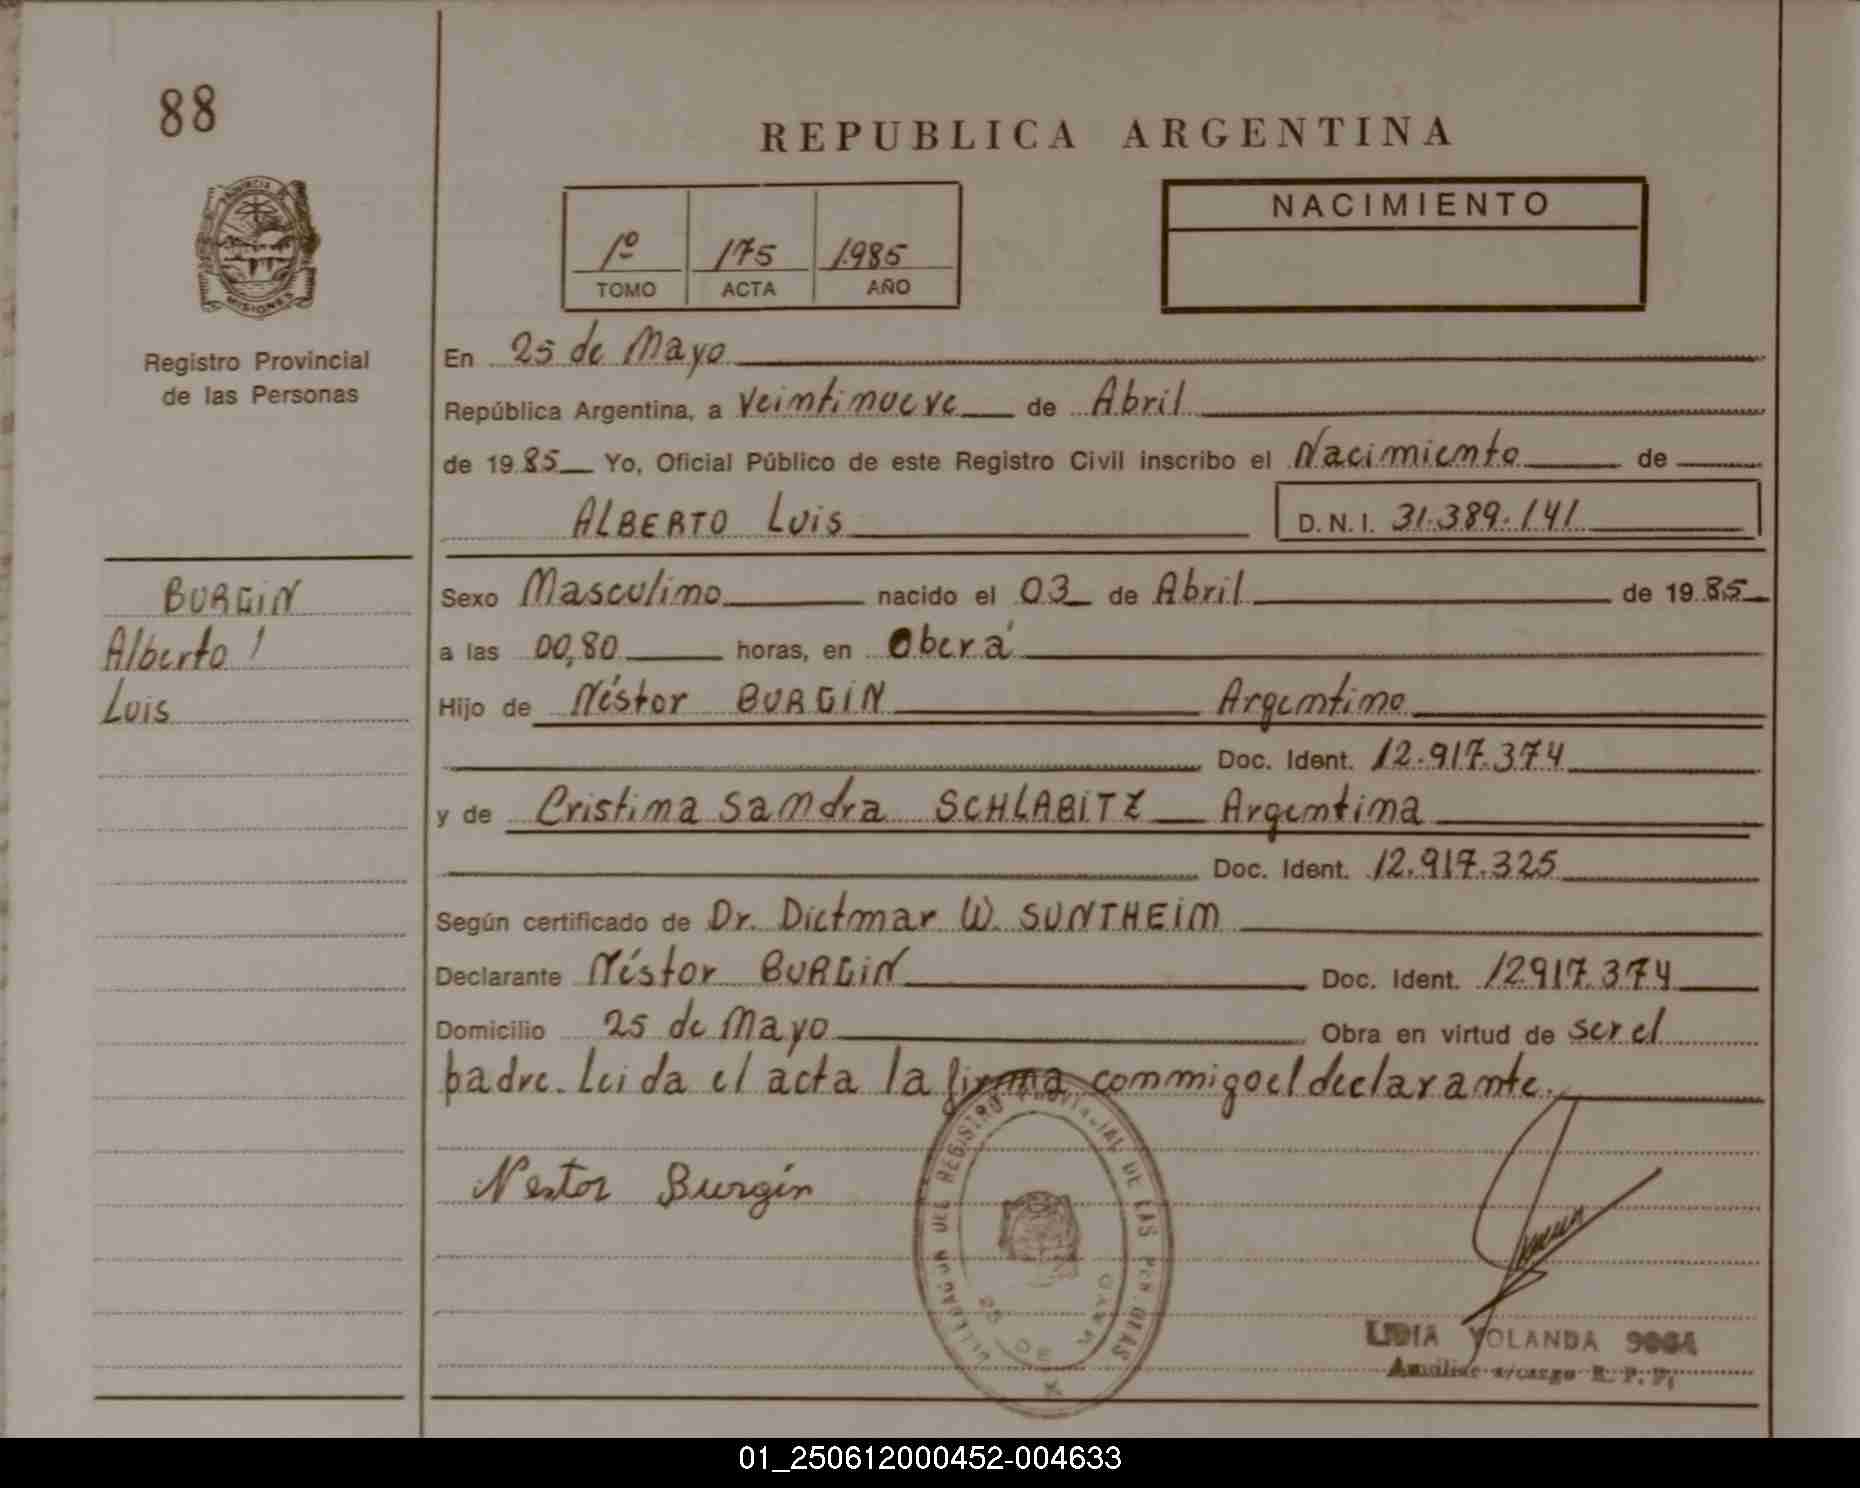 88
REPUBLICA ARGENTINA
NACIMIENTO
1º 175 1985
TOMO ACTA AÑO
MISIONES
Registro Provincial
de las Personas
En 25 de Mayo
República Argentina, a veintinueve de Abril
de 1985 Yo, Oficial Público de este Registro Civil inscribo el Nacimiento de
ALBERTO Luis D.N.I. 31.389.141
BURGIN
Alberto
Luis
Sexo Masculino nacido el 03 de Abril de 1985
a las 00,80 horas, en Oberá
Hijo de Néstor BURGIN Argentino
Doc. Ident. 12.917.374
y de Cristina Sandra SCHLABITZ Argentina
Doc. Ident. 12.917.325
Según certificado de Dr. Dietmar W. SUNTHEIM
Declarante Néstor BURGIN Doc. Ident. 12917.374
Domicilio 25 de Mayo Obra en virtud de ser el
padre. Leida el acta la firma conmigo el declarante.
Nestor Burgin
DEL REGISTRO PROVINCIAL DE LAS PERSONAS
25 DE MAYO
LIDIA YOLANDA
Auxiliar a/cargo R. P. P.
01_250612000452-004633